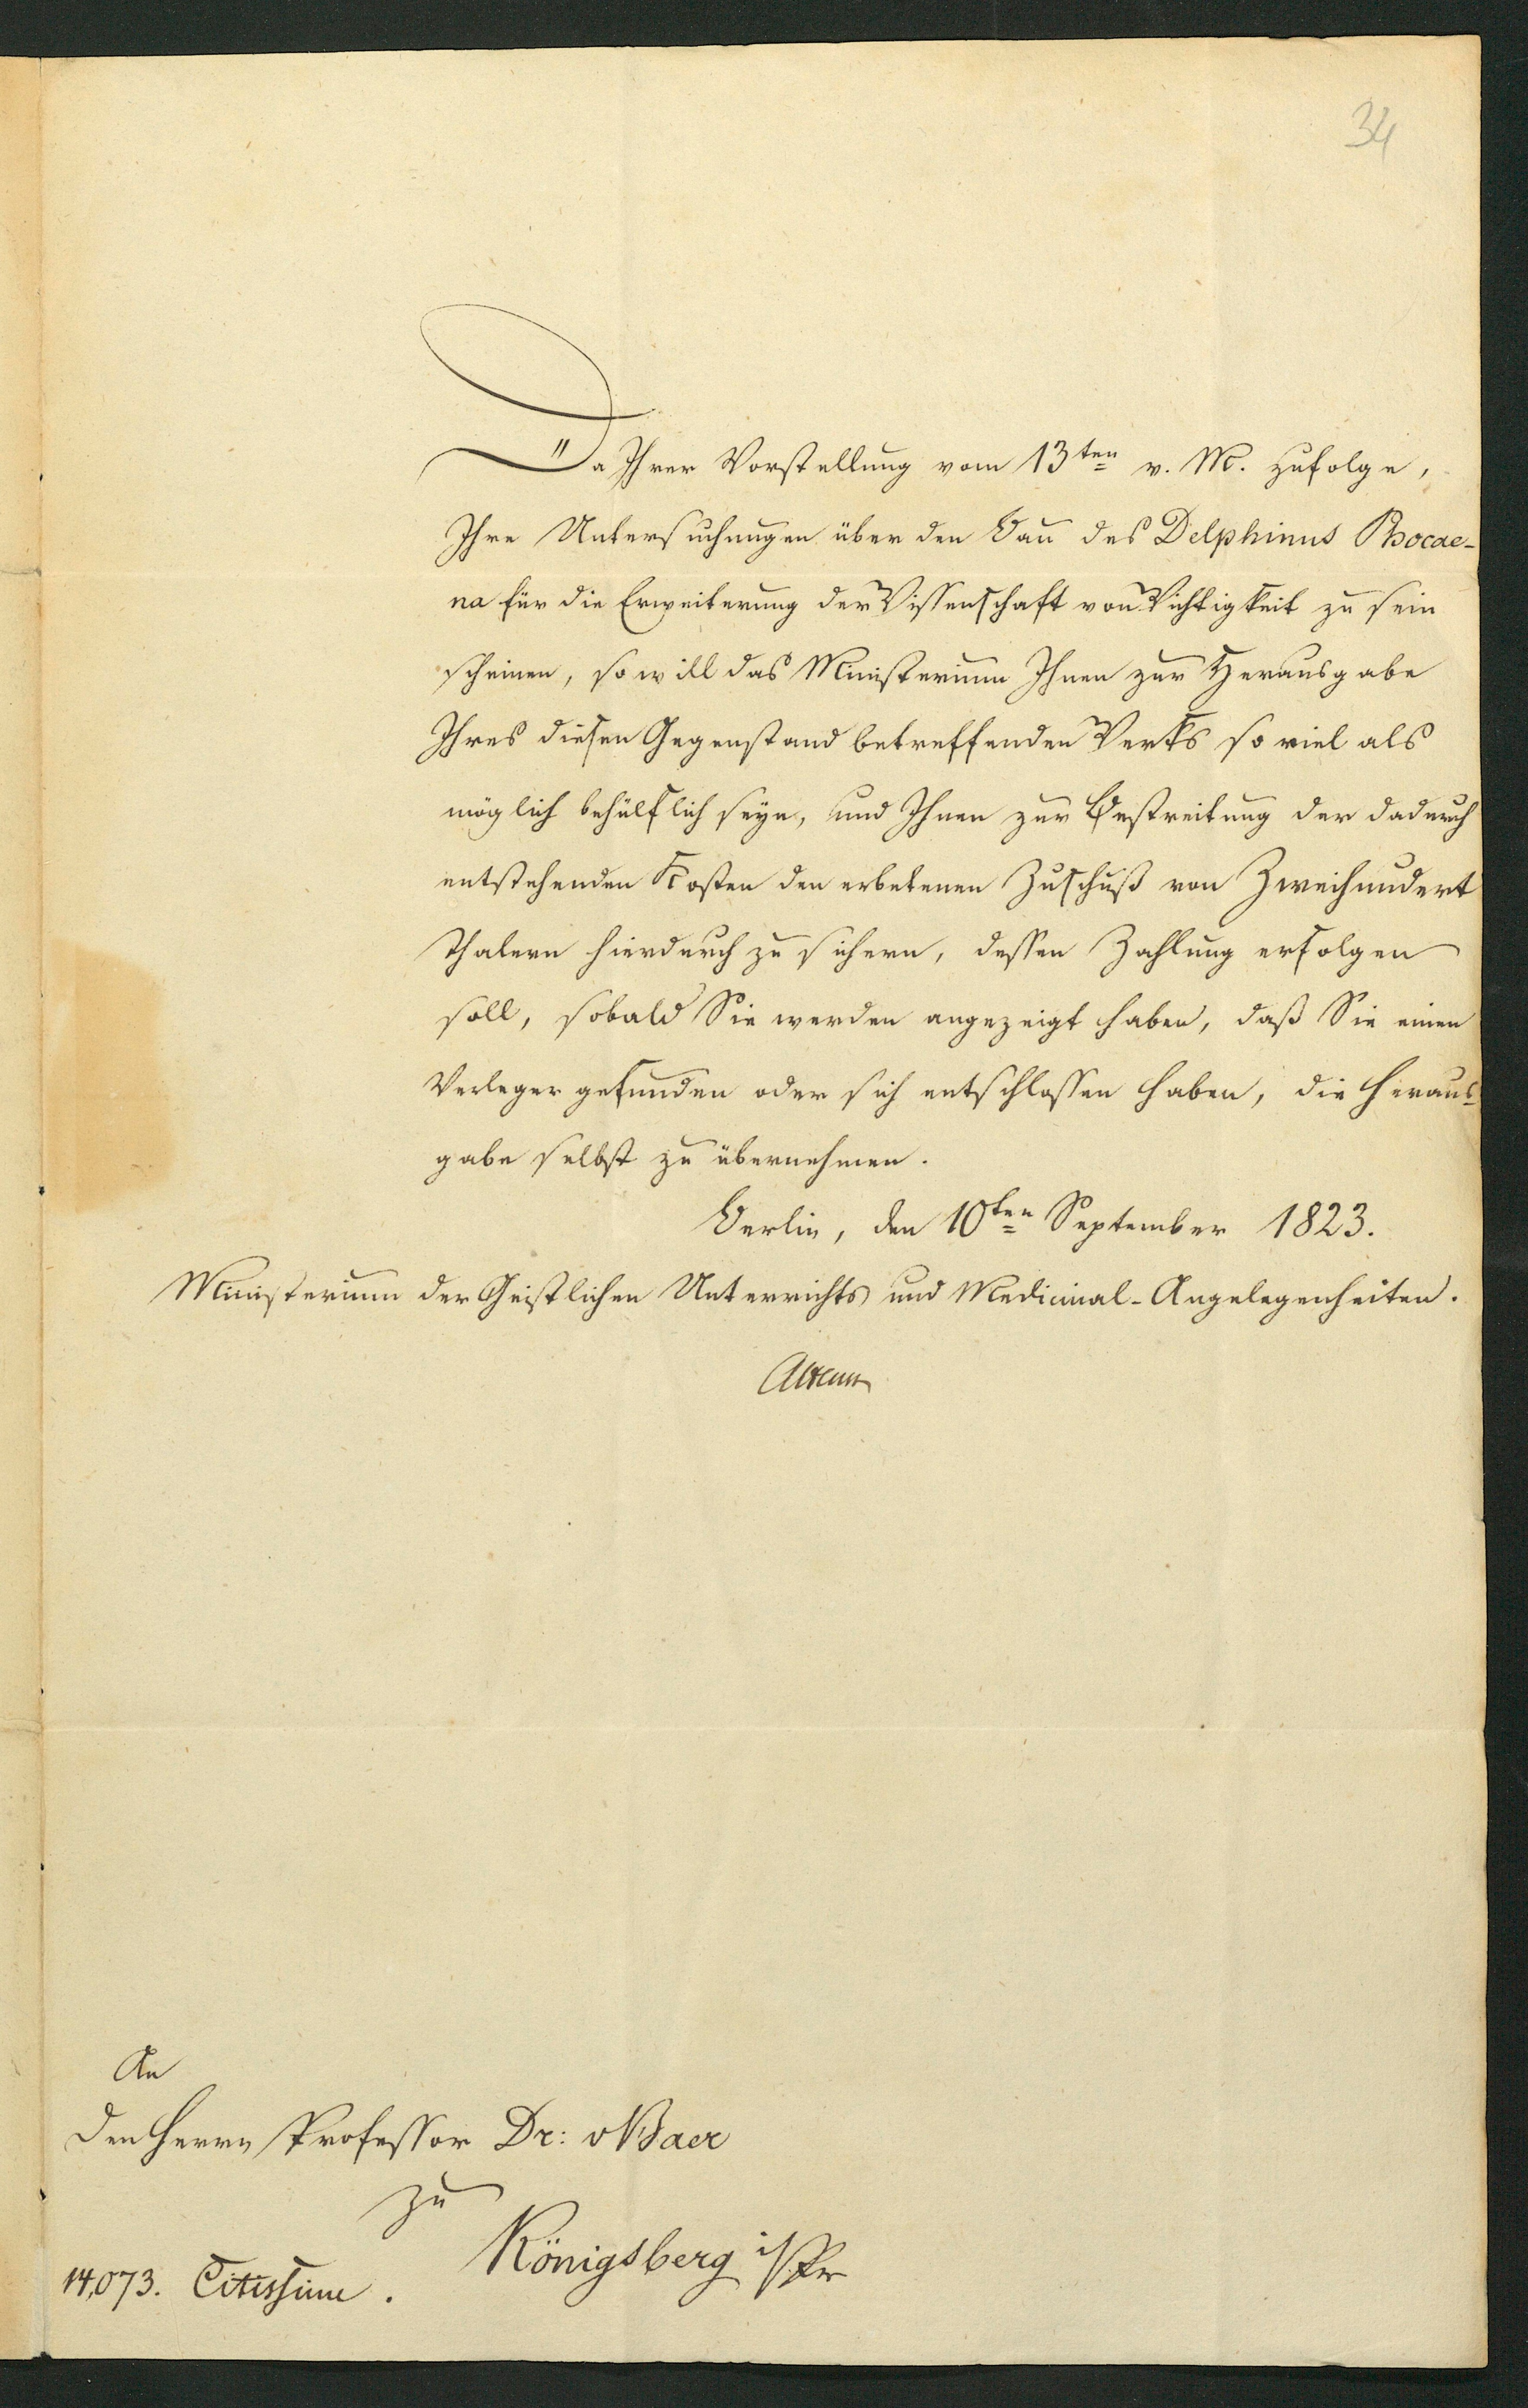 34
Da Ihrer Vorstellung vom 13ten v. M. zufolge,
Ihre Untersuchungen über den Bau des Delphinus Phocae-
na für die Erweiterung der Wissenschaft von Wichtigkeit zu sein
scheinen, so will das Ministerium Ihnen zur Herausgabe
Ihres diesen Gegenstand betreffenden Werks so viel als
möglich behülflich seyn, und Ihnen zur Bestreitung der dadurch
entstehenden Kosten den erbetenen Zuschuß von Zweihundert
Thalern hierdurch zu sichern, dessen Zahlung erfolgen
soll, sobald Sie werden angezeigt haben, daß Sie einen
Verleger gefunden oder sich entschlossen haben, die Heraus-
gabe selbst zu übernehmen.
Berlin, den 10ten September 1823.
Ministerium der Geistlichen Unterrichts und Medicinal-Angelegenheiten.
Altenst
An
den Herrn Professor Dr: v Baer
zu
Königsberg i/Pr
14,073. Citissime.